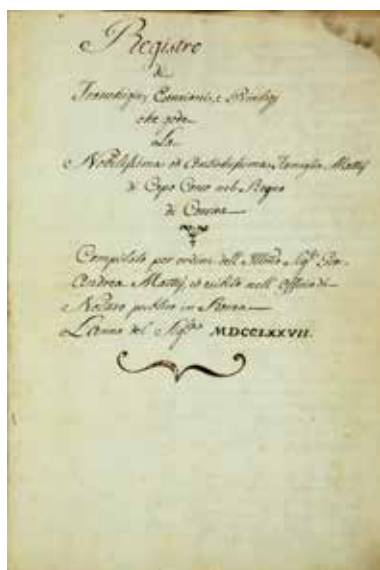 Registro
di
Franchigie, Esenzioni, e Privilegj
che gode
La
Nobilissima ed Antichissima Famiglia Mattej
di Capo Corso nel Regno
di Corsica
Compilato per ordine dell' Illmo Sigr Gio-
Andrea Mattej, ed esibito nell' Officio di
Notaro publico in
L'anno del Sigre MDCCLXXVII.